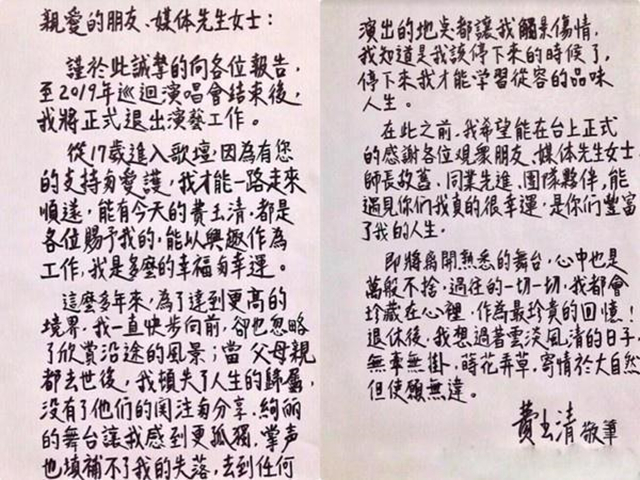 親愛的朋友、媒体先生女士：
謹於此誠摯的向各位報告，
至2019年巡迴演唱會結束後，
我將正式退出演藝工作。
從17歲進入歌壇，因為有您
的支持與愛護，我才能一路走來
順遂，能有今天的費玉清，都是
各位賜予我的，能以興趣作為
工作，我是多麼的幸福與幸運。
這麼多年來，為了達到更高的
境界，我一直快步向前，卻也忽略
了欣賞沿途的風景；當父母親
都去世後，我頓失了人生的歸屬，
沒有了他們的関注與分享，絢麗
的舞台讓我感到更孤獨，掌声
也填補不了我的失落，去到任何
演出的地点都讓我觸景傷情，
我知道是我該停下來的時候了，
停下來我才能學習從容的品味
人生。
在此之前，我希望能在台上正式
的感謝各位觀眾朋友、媒体先生女士、
師長故舊、同業先進、團隊夥伴，能
遇見你們我真的很幸運，是你們豐富
了我的人生。
即將離開熟悉的舞台，心中也是
萬般不捨，過往的一切一切，我都會
珍藏在心裡，作為最珍貴的回憶！
退休後，我想過著雲淡風清的日子，
無牽無掛，蒔花弄草，寄情於大自然
但使願無違。
費玉清 敬筆